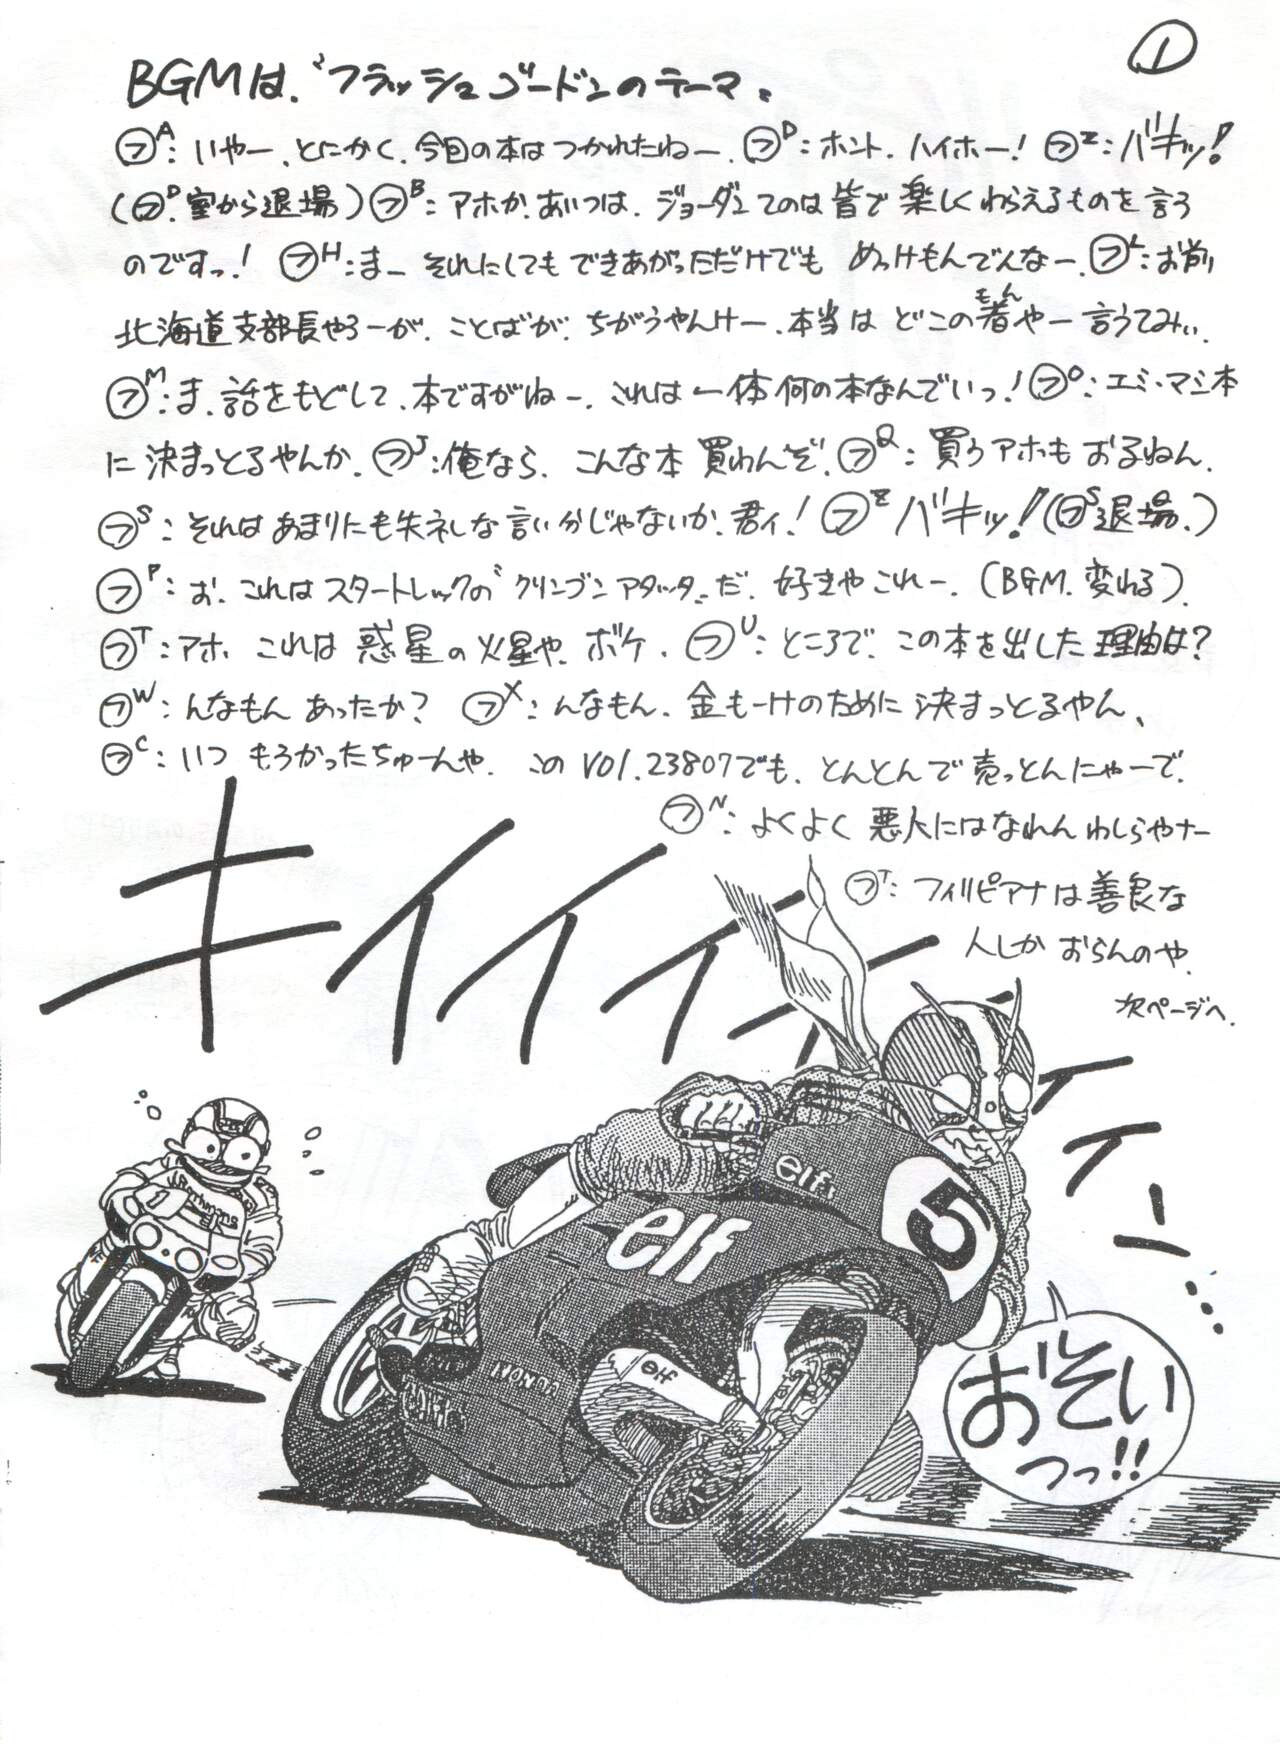 ①
BGMは、〝フラッシュゴードンのテーマ〟
㋫A：いやー、とにかく、今回の本はつかれたねー、㋫D：ホント、ハイホー！ ㋫Z：バキッ！
(㋫D、室から退場) ㋫B：アホか、あいつは、ジョーダンてのは皆で楽しくわらえるものを言う
のですっ！ ㋫H：まー それにしてもできあがっただけでも めっけもんでんなー、㋫L：お前
北海道支部長やろーが、ことばが、ちがうやんけー、本当は どこの者やー 言うてみぃ、
もん
㋫M：ま、話をもどして、本ですがねー、これは 一体何の本なんでいっ！ ㋫O：エミ・マミ本
に決まっとるやんか、㋫J：俺なら、こんな本 買わんぞ、㋫Q：買うアホも おるねん、
㋫S：それはあまりにも失ネしな言い分じゃないか、君ィ！ ㋫Z バキッ！(㋫S退場、)
㋫P：お、これはスタートレックの〝クリンゴンアタック〟だ、好きやこれー、(BGM、変わる)、
㋫T：アホ、これは 惑星の火星や、ボケ、㋫U：ところで、この本を出した理由は？
㋫W：んなもん あったか？ ㋫X：んなもん、金もーけのために 決まっとるやん、
㋫C：いつ もうかったちゅーんや、この VOl.23807でも、とんとんで売っとんにゃーで、
㋫N：よくよく 悪人にはなれん わしらやナー
㋫T：フィリピアナは善良な
人しか おらんのや、
次ページへ、
キイイイイイイイイー…
elf
elf
5
elf
HONDA
elf
Rothmans
1
おそい
つっ!!